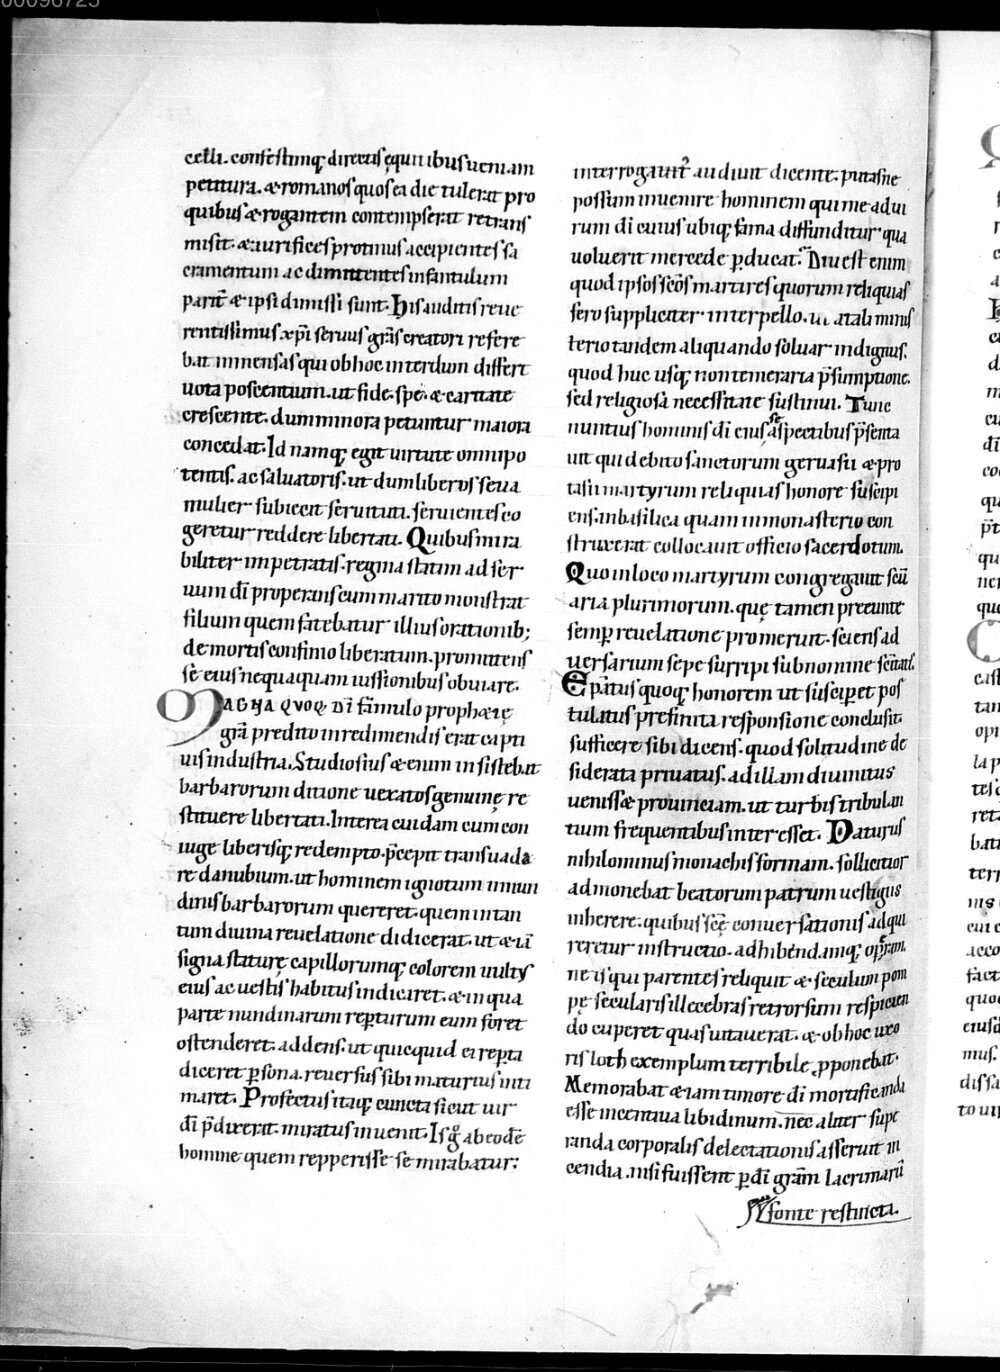 00098725
celli. confestimq; directis equitibus ueniam
petitura. & romanos quos ea die tulerat pro
quibus & rogantem contempserat retrans
misit. & aurifices protinus accipientes sa
cramentum ac dimittentes infantulum
parit̄ & ipsi dimissi sunt. His auditis reue
rentissimus xp̄i seruus gr̄as creatori refere
bat inmensas qui ob hoc interdum differt
uota poscentium. ut fide. spe. & caritate
crescente. dum minora petuntur maiora
concedat. Id namq; egit uirtute omnipo
tentis. ac saluatoris. ut dum liberos seua
mulier subiecit seruituti. seruientes co
geretur reddere libertati. Quibus mira
biliter impetratis. regina statim ad ser
uum dī properans cum marito monstrat
filium quem fatebatur illius orationib;
de mortis confinio liberatum. promittens
se eius nequaquam iussionibus obuiare.
MAGNA QVOQ; DĪ famulo prophetie
grā predito in redimendis erat capti
uis industria. Studiosius & enim insistebat
barbarorum ditione uexatos genuinę re
stituere libertati. Interea cuidam cum con
iuge liberisq; redempto. p̄cepit transuada
re danubium. ut hominem ignotum in nun
dinis barbarorum quereret. quem in tan
tum diuina reuelatione didicerat. ut & iā
signa staturę capillorumq; colorem uultus
eius ac uestis habitus indicaret. & in qua
parte nundinarum repturum eum foret
ostenderet. addens. ut quicquid ei rep̱ta
diceret p̱sona. reuersus sibi maturius inti
maret. Profectus itaq; cuncta sicut uir
dī p̄dixerat. miratus inuenit. Is g̊ ab eodē
homine quem repperisse se mirabatur.
interrogatur audiuit dicente. putas ne
possum inuenire hominem qui me ad ui
rum dī cuius ubiq; fama diffunditur qua
uoluerit mercede p̱ducat. Diu est enim
quod ipsos sc̄os martires quorum reliquias
fero suppliciter interpello. ut a tali minis
terio tandem aliquando soluar indignus.
quod huc usq; non temeraria p̄sumptione.
sed religiosa necessitate sustinui. Tunc
nuntius hominis dī eius se aspectibus p̄senta
uit qui debito sanctorum geruasii & pro
tasii martyrum reliquias honore suscipi
ens. in basilica quam in monasterio con
struxerat collocauit officio sacerdotum.
Quo in loco martyrum congregauit sc̄u
aria plurimorum. quę tamen preeunte
semp̱ reuelatione promeruit. sciens ad
uersarium sepe surripi sub nomine sc̄itatis.
Ep̄atus quoq; honorem ut suscip̱et pos
tulatus prefinita responsione conclusit.
sufficere sibi dicens. quod solitudine de
siderata priuatus. ad illam diuinitus
uenisset prouinciam. ut turbis tribulan
tium frequentibus interesset. Daturus
nihilominus monachis formam. sollicitior
admonebat beatorum patrum uestigiis
inherere. quibus sc̄ę conuersationis adqui
reretur instructio. adhibendamq; op̱ram.
ne is qui parentes reliquit & seculum pom
pę secularis illecebras retrorsum respicien
do cuperet quas uitauerat. & ob hoc uxo
ris loth exemplum terribile p̱ponebat.
Memorabat & iam timore dī mortificanda
esse incentiua libidinum. nec aliter supe
randa corporalis delectationis asseruit in
cendia. nisi fuissent p̱ dī grām lacrimarū
fonte restincta.